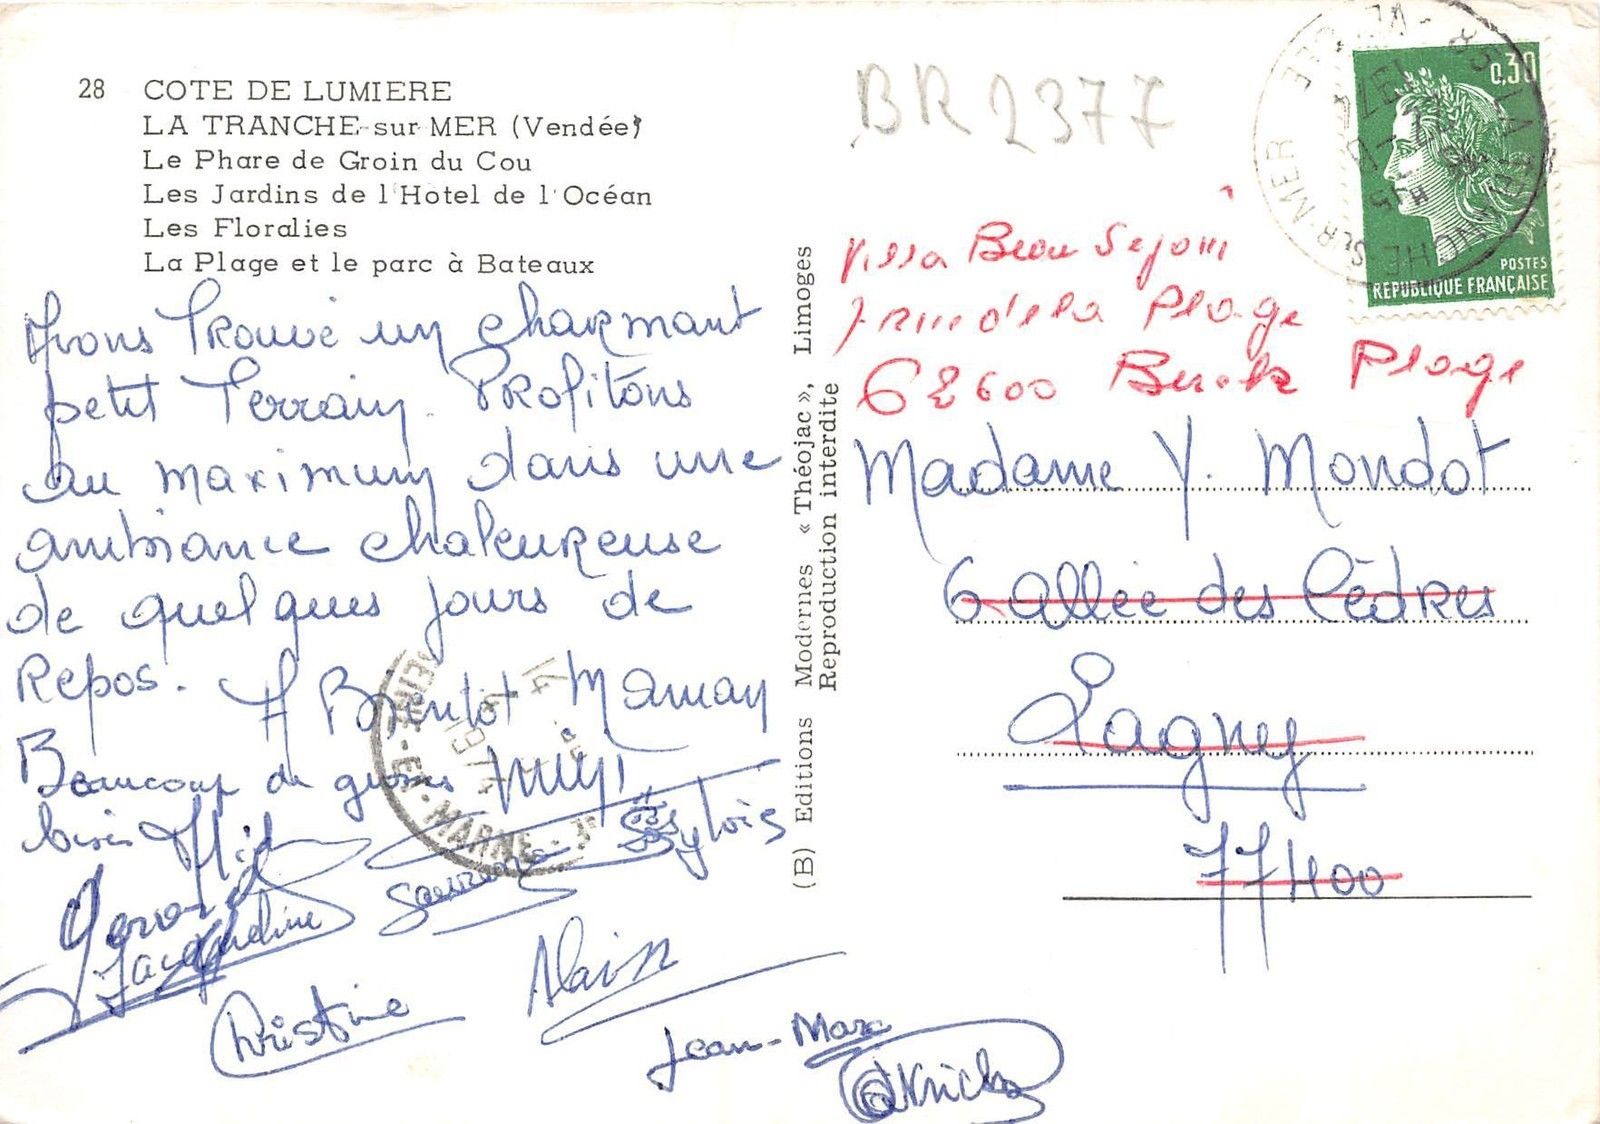 28 COTE DE LUMIERE
LA TRANCHE-sur-MER (Vendée)
Le Phare de Groin du Cou
Les Jardins de l'Hotel de l'Océan
Les Floralies
La Plage et le parc à Bateaux
Avons Trouvé un charmant
petit Terrain. Profitons
au maximum dans une
ambiance chaleureuse
de quelques jours de
Repos. A Bientôt Maman
Beaucoup de grosses
bises
Gérard
Jacqueline
Sylvie
Christine
Alain
Jean-Marc
SEINE-ET-MARNE
(B) Editions Modernes « Théojac », Limoges
Reproduction interdite
BR 2377
0,30
POSTES
REPUBLIQUE FRANÇAISE
85 LA TRANCHE SUR MER
VENDEE
Villa Beau Sejour
7 rue de la Plage
62600 Berck Plage
Madame Y. Mondot
6 allée des Cèdres
Lagny
77400